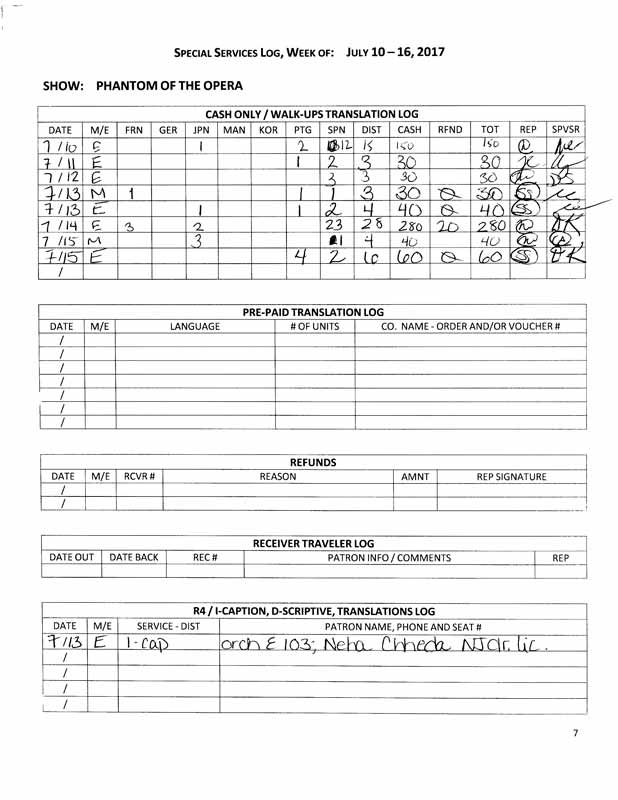 SPECIAL SERVICES LOG, WEEK OF: JULY 10 – 16, 2017
SHOW: PHANTOM OF THE OPERA
CASH ONLY / WALK-UPS TRANSLATION LOG
DATE M/E FRN GER JPN MAN KOR PTG SPN DIST CASH RFND TOT REP SPVSR
7/10 E 1 2 12 15 150 150
7/11 E 1 2 3 30 30
7/12 E 3 3 30 30
7/13 M 1 1 1 3 30 0 30 SS
7/13 E 1 1 2 4 40 0 40 SS
7/14 E 3 2 23 28 280 20 280 DK
7/15 M 3 1 4 40 40
7/15 E 4 2 6 60 0 60 SS DK
/
PRE-PAID TRANSLATION LOG
DATE M/E LANGUAGE # OF UNITS CO. NAME - ORDER AND/OR VOUCHER #
/
/
/
/
/
/
/
REFUNDS
DATE M/E RCVR # REASON AMNT REP SIGNATURE
/
/
RECEIVER TRAVELER LOG
DATE OUT DATE BACK REC # PATRON INFO / COMMENTS REP
R4 / I-CAPTION, D-SCRIPTIVE, TRANSLATIONS LOG
DATE M/E SERVICE - DIST PATRON NAME, PHONE AND SEAT #
7/13 E I-cap orch E 103; Neha Chheda NJ dr. lic.
/
/
/
/
7